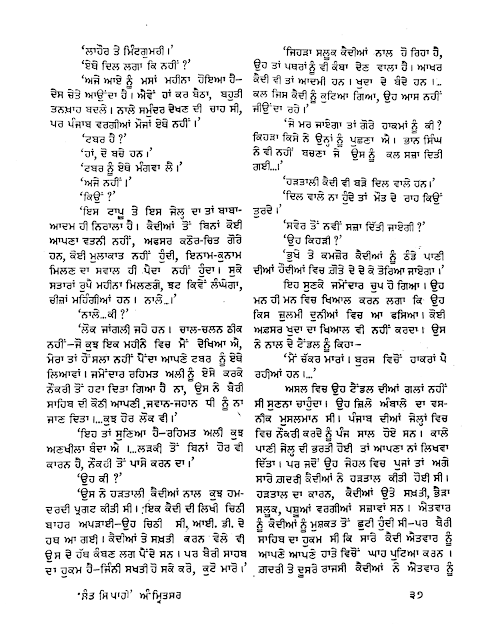 'ਲਾਹੌਰ ਤੋ ਮਿੰਟਗੁਮਰੀ।'
'ਏਥੇ ਦਿਲ ਲਗਾ ਕਿ ਨਹੀਂ ?'
'ਅਜੇ ਆਏ ਨੂੰ ਮਸਾਂ ਮਹੀਨਾ ਹੋਇਆ ਹੈ–
ਦੇਸ ਚੇਤੇ ਆਉਂਦਾ ਹੈ। ਐਵੇਂ ਹਾਂ ਕਰ ਬੈਠਾ, ਬਹੁਤੀ
ਤਨਖ਼ਾਹ ਬਦਲੇ। ਨਾਲੇ ਸਮੁੰਦਰ ਦੇਖਣ ਦੀ ਚਾਹ ਸੀ,
ਪਰ ਪੰਜਾਬ ਵਰਗੀਆਂ ਮੌਜਾਂ ਏਥੇ ਨਹੀਂ।'
'ਟਬਰ ਹੈ ?'
'ਹਾਂ, ਦੋ ਬਚੇ ਹਨ।'
'ਟਬਰ ਨੂੰ ਏਥੇ ਮੰਗਵਾ ਲੈ।'
'ਅਜੇ ਨਹੀਂ।'
'ਕਿਉਂ ?'
'ਇਸ ਟਾਪੂ ਤੋ ਇਸ ਜੇਲ੍ਹ ਦਾ ਤਾਂ ਬਾਬਾ-
ਆਦਮ ਹੀ ਨਿਰਾਲਾ ਹੈ। ਕੈਦੀਆਂ ਤੋਂ ਬਿਨਾਂ ਕੋਈ
ਆਪਣਾ ਵਤਨੀ ਨਹੀਂ, ਅਫਸਰ ਕਠੋਰ-ਚਿਤ ਗੋਰੇ
ਹਨ, ਕੋਈ ਮੁਲਾਕਾਤ ਨਹੀਂ ਹੁੰਦੀ, ਇਨਾਮ-ਕੁਨਾਮ
ਮਿਲਣ ਦਾ ਸਵਾਲ ਹੀ ਪੈਦਾ ਨਹੀਂ ਹੁੰਦਾ। ਸੁਕੇ
ਸਤਾਰਾਂ ਰੁਪੈ ਮਹੀਨਾ ਮਿਲਣਗੇ, ਝਟ ਕਿਵੇਂ ਲੰਘੇਗਾ,
ਚੀਜ਼ਾਂ ਮਹਿੰਗੀਆਂ ਹਨ। ਨਾਲੇ...।'
'ਨਾਲੇ...ਕੀ ?'
'ਲੋਕ ਜਾਂਗਲੀ ਜਹੇ ਹਨ। ਚਾਲ-ਚਲਨ ਠੀਕ
ਨਹੀਂ–ਜੋ ਕੁਝ ਇਕ ਮਹੀਨੇ ਵਿਚ ਮੈਂ ਦੇਖਿਆ ਐ,
ਮੇਰਾ ਤਾਂ ਹੌਂਸਲਾ ਨਹੀਂ ਪੈਂਦਾ ਆਪਣੇ ਟਬਰ ਨੂੰ ਏਥੇ
ਲਿਆਵਾਂ। ਜਮੇਂਦਾਰ ਰਹਿਮਤ ਅਲੀ ਨੂੰ ਏਸੇ ਕਰਕੇ
ਨੌਕਰੀ ਤੋਂ ਹਟਾ ਦਿਤਾ ਗਿਆ ਹੈ ਨਾ, ਉਸ ਨੇ ਬੈਰੀ
ਸਾਹਿਬ ਦੀ ਕੋਠੀ ਆਪਣੀ ਜਵਾਨ-ਜਹਾਨ ਧੀ ਨੂੰ ਨਾ
ਜਾਣ ਦਿਤਾ।...ਕੁਝ ਹੋਰ ਲੋਕ ਵੀ।'
'ਇਹ ਤਾਂ ਸੁਣਿਆ ਹੈ–ਰਹਿਮਤ ਅਲੀ ਕੁਝ
ਅਣਖੀਲਾ ਬੰਦਾ ਐ ।...ਲੜਕੀ ਤੋਂ ਬਿਨਾਂ ਹੋਰ ਵੀ
ਕਾਰਨ ਹੈ, ਨੌਕਰੀ ਤੋਂ ਪਾਸੇ ਕਰਨ ਦਾ।'
'ਉਹ ਕੀ ?'
'ਉਸ ਨੇ ਹੜਤਾਲੀ ਕੈਦੀਆਂ ਨਾਲ ਕੁਝ ਹਮ-
ਦਰਦੀ ਪ੍ਰਗਟ ਕੀਤੀ ਸੀ। ਇਕ ਕੈਦੀ ਦੀ ਲਿਖੀ ਚਿਠੀ
ਬਾਹਰ ਅਪੜਾਈ–ਉਹ ਚਿਠੀ ਸੀ. ਆਈ. ਡੀ. ਦੇ
ਹਥ ਆ ਗਈ। ਕੈਦੀਆਂ ਤੇ ਸਖ਼ਤੀ ਕਰਨ ਵੇਲੇ ਵੀ
ਉਸ ਦੇ ਹੱਥ ਕੰਬਣ ਲਗ ਪੈਂਦੇ ਸਨ। ਪਰ ਬੈਰੀ ਸਾਹਬ
ਦਾ ਹੁਕਮ ਹੈ–ਜਿੰਨੀ ਸਖਤੀ ਹੋ ਸਕੇ ਕਰੋ, ਕੁਟੋ ਮਾਰੋ।'
'ਜਿਹੜਾ ਸਲੂਕ ਕੈਦੀਆਂ ਨਾਲ ਹੋ ਰਿਹਾ ਹੈ,
ਉਹ ਤਾਂ ਪਥਰਾਂ ਨੂੰ ਵੀ ਕੰਬਾ ਦੇਣ ਵਾਲਾ ਹੈ। ਆਖਰ
ਕੈਦੀ ਵੀ ਤਾਂ ਆਦਮੀ ਹਨ। ਖ਼ੁਦਾ ਦੇ ਬੰਦੇ ਹਨ।...
ਕਲ ਜਿਸ ਕੈਦੀ ਨੂੰ ਕੁਟਿਆ ਗਿਆ, ਉਹ ਆਸ ਨਹੀਂ
ਜੀਉਂਦਾ ਰਹੇ।'
'ਜੇ ਮਰ ਜਾਏਗਾ ਤਾਂ ਗੋਰੇ ਹਾਕਮਾਂ ਨੂੰ ਕੀ ?
ਕਿਹੜਾ ਕਿਸੇ ਨੇ ਉਨ੍ਹਾਂ ਨੂੰ ਪੁਛਣਾ ਐ। ਭਾਨ ਸਿੰਘ
ਨੇ ਵੀ ਨਹੀਂ ਬਚਣਾ ਜੋ ਉਸ ਨੂੰ ਕਲ ਸਜ਼ਾ ਦਿਤੀ
ਗਈ...।'
'ਹੜਤਾਲੀ ਕੈਦੀ ਵੀ ਬੜੇ ਦਿਲ ਵਾਲੇ ਹਨ।'
'ਦਿਲ ਵਾਲੇ ਨਾ ਹੁੰਦੇ ਤਾਂ ਮੌਤ ਦੇ ਰਾਹ ਕਿਉਂ
ਤੁਰਦੇ।'
'ਸਵੇਰ ਤੋਂ ਨਵੀਂ ਸਜ਼ਾ ਦਿੱਤੀ ਜਾਏਗੀ ?'
'ਉਹ ਕਿਹੜੀ ?'
'ਭੁਖੇ ਤੇ ਕਮਜ਼ੋਰ ਕੈਦੀਆਂ ਨੂੰ ਠੰਡੇ ਪਾਣੀ
ਦੀਆਂ ਹੌਦੀਆਂ ਵਿਚ ਗ਼ੋਤੇ ਦੇ ਦੇ ਕੇ ਤੋੜਿਆ ਜਾਏਗਾ।'
ਇਹ ਸੁਣਕੇ ਜਮੇਂਦਾਰ ਚੁਪ ਹੋ ਗਿਆ। ਉਹ
ਮਨ ਹੀ ਮਨ ਵਿਚ ਖਿਆਲ ਕਰਨ ਲਗਾ ਕਿ ਉਹ
ਕਿਸ ਜ਼ੁਲਮੀ ਦੁਨੀਆਂ ਵਿਚ ਆ ਫਸਿਆ। ਕੋਈ
ਅਫ਼ਸਰ ਖ਼ੁਦਾ ਦਾ ਖਿਆਲ ਵੀ ਨਹੀਂ ਕਰਦਾ। ਉਸ
ਨੇ ਨਾਲ ਦੇ ਟੈਂਡਲ ਨੂੰ ਕਿਹਾ–
'ਮੈਂ ਚੱਕਰ ਮਾਰਾਂ। ਬੁਰਜ ਵਿਚੋਂ ਹਾਕਰਾਂ ਪੈ
ਰਹੀਆਂ ਹਨ।...'
ਅਸਲ ਵਿਚ ਉਹ ਟੈਂਡਲ ਦੀਆਂ ਗਲਾਂ ਨਹੀਂ
ਸੀ ਸੁਣਨਾ ਚਾਹੁੰਦਾ। ਉਹ ਜ਼ਿਲੇ ਅੰਬਾਲੇ ਦਾ ਵਸ-
ਨੀਕ ਮੁਸਲਮਾਨ ਸੀ। ਪੰਜਾਬ ਦੀਆਂ ਜੇਲ੍ਹਾਂ ਵਿਚ
ਵਿਚ ਨੌਕਰੀ ਕਰਦੇ ਨੂੰ ਪੰਜ ਸਾਲ ਹੋਏ ਸਨ। ਕਾਲੇ
ਪਾਣੀ ਜੇਲ੍ਹ ਦੀ ਭਰਤੀ ਹੋਈ ਤਾਂ ਆਪਣਾ ਨਾਂ ਲਿਖਵਾ
ਦਿੱਤਾ। ਪਰ ਜਦੋਂ ਉਹ ਜੇਹਲ ਵਿਚ ਪੁਜਾ ਤਾਂ ਅਗੇ
ਸਾਰੇ ਗ਼ਦਰੀ ਕੈਦੀਆਂ ਨੇ ਹੜਤਾਲ ਕੀਤੀ ਹੋਈ ਸੀ।
ਹੜਤਾਲ ਦਾ ਕਾਰਨ, ਕੈਦੀਆਂ ਉਤੇ ਸਖ਼ਤੀ, ਭੈੜਾ
ਸਲੂਕ, ਪਸ਼ੂਆਂ ਵਰਗੀਆਂ ਸਜ਼ਾਵਾਂ ਸਨ। ਐਤਵਾਰ
ਨੂੰ ਕੈਦੀਆਂ ਨੂੰ ਮੁਸ਼ਕਤ ਤੋਂ ਛੁਟੀ ਹੁੰਦੀ ਸੀ–ਪਰ ਬੈਰੀ
ਸਾਹਿਬ ਦਾ ਹੁਕਮ ਸੀ ਕਿ ਸਾਰੇ ਕੈਦੀ ਐਤਵਾਰ ਨੂੰ
ਆਪਣੇ ਆਪਣੇ ਹਾਤੇ ਵਿਚੋਂ ਘਾਹ ਪੁਟਿਆ ਕਰਨ।
ਗ਼ਦਰੀ ਤੇ ਦੂਸਰੇ ਰਾਜਸੀ ਕੈਦੀਆਂ ਨੇ ਐਤਵਾਰ ਨੂੰ
'ਸੰਤ ਸਿਪਾਹੀ' ਅੰਮ੍ਰਿਤਸਰ
੩੭